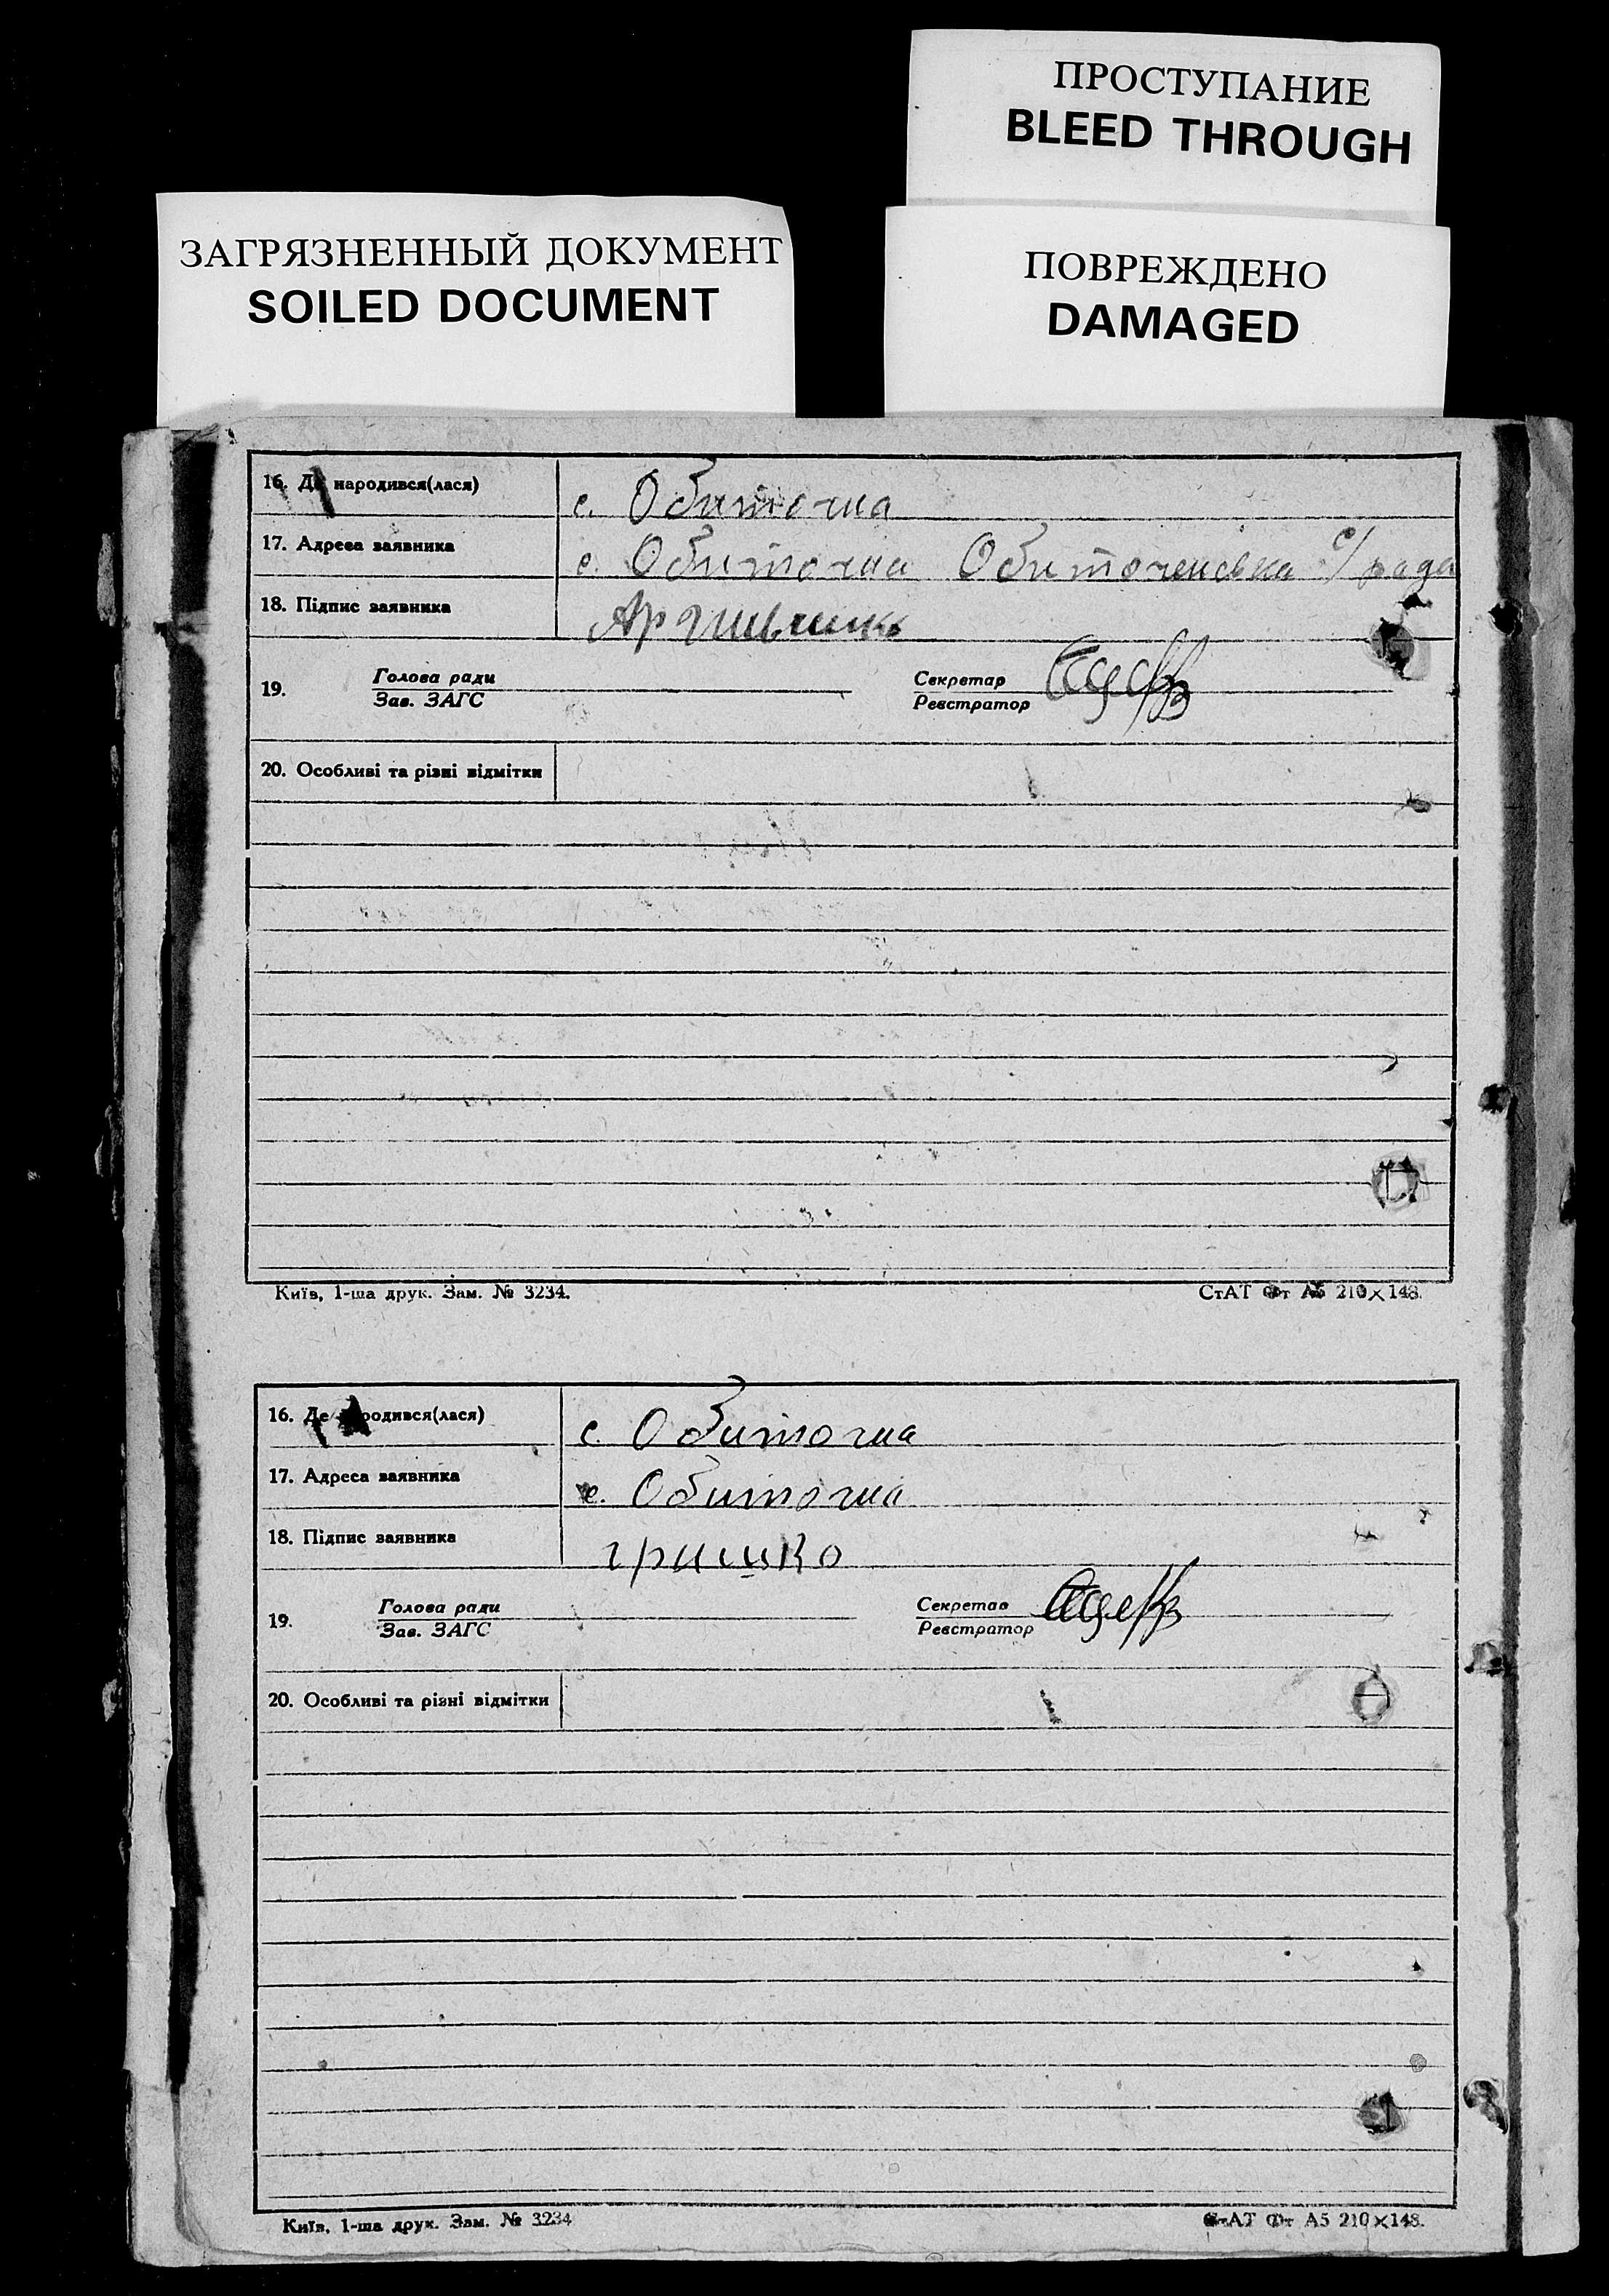 ПРОСТУПАНИЕ
BLEED THROUGH
ЗАГРЯЗНЕННЫЙ ДОКУМЕНТ
SOILED DOCUMENT
ПОВРЕЖДЕНО
DAMAGED
16. Де народився(лася) с. Обиточна
17. Адреса заявника с. Обиточна Обиточенська с/рада
18. Підпис заявника
19. Голова ради Секретар
Зав. ЗАГС Реєстратор
20. Особливі та різні відмітки
Київ, 1-ша друк. Зам. № 3234. СтАТ Фт А5 210×148.
16. Де народився(лася) с. Обиточна
17. Адреса заявника с. Обиточна
18. Підпис заявника гришко
19. Голова ради Секретар
Зав. ЗАГС Реєстратор
20. Особливі та різні відмітки
Київ, 1-ша друк. Зам. № 3234 СтАТ Фт А5 210×148.